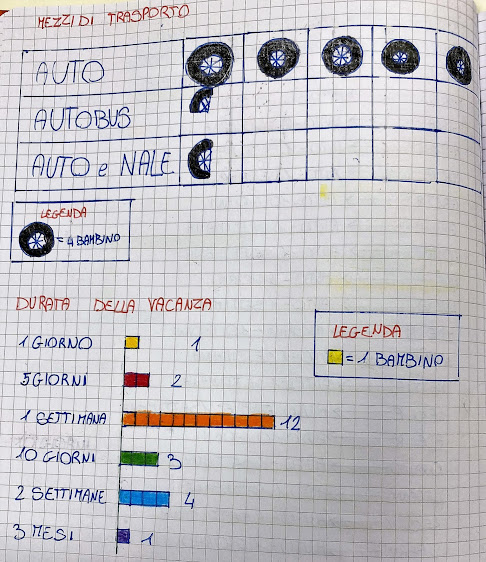 MEZZI DI TRASPORTO
AUTO
AUTOBUS
AUTO e NALE
LEGENDA
= 4 BAMBINO
DURATA DELLA VACANZA
LEGENDA
= 1 BAMBINO
1 GIORNO 1
5 GIORNI 2
1 SETTIMANA 12
10 GIORNI 3
2 SETTIMANE 4
3 MESI 1